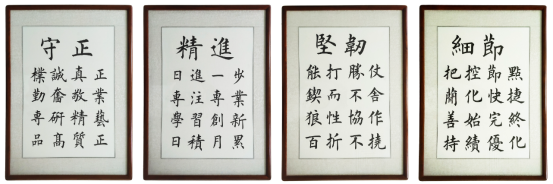 守正
樸誠真正
勤奮敬業
專研精藝
品高質正
精進
日進一步
專注專業
學習創新
日積月累
堅韌
能打勝仗
鍥而不舍
狼性協作
百折不撓
細節
把控節點
簡化快捷
善始完終
持續優化